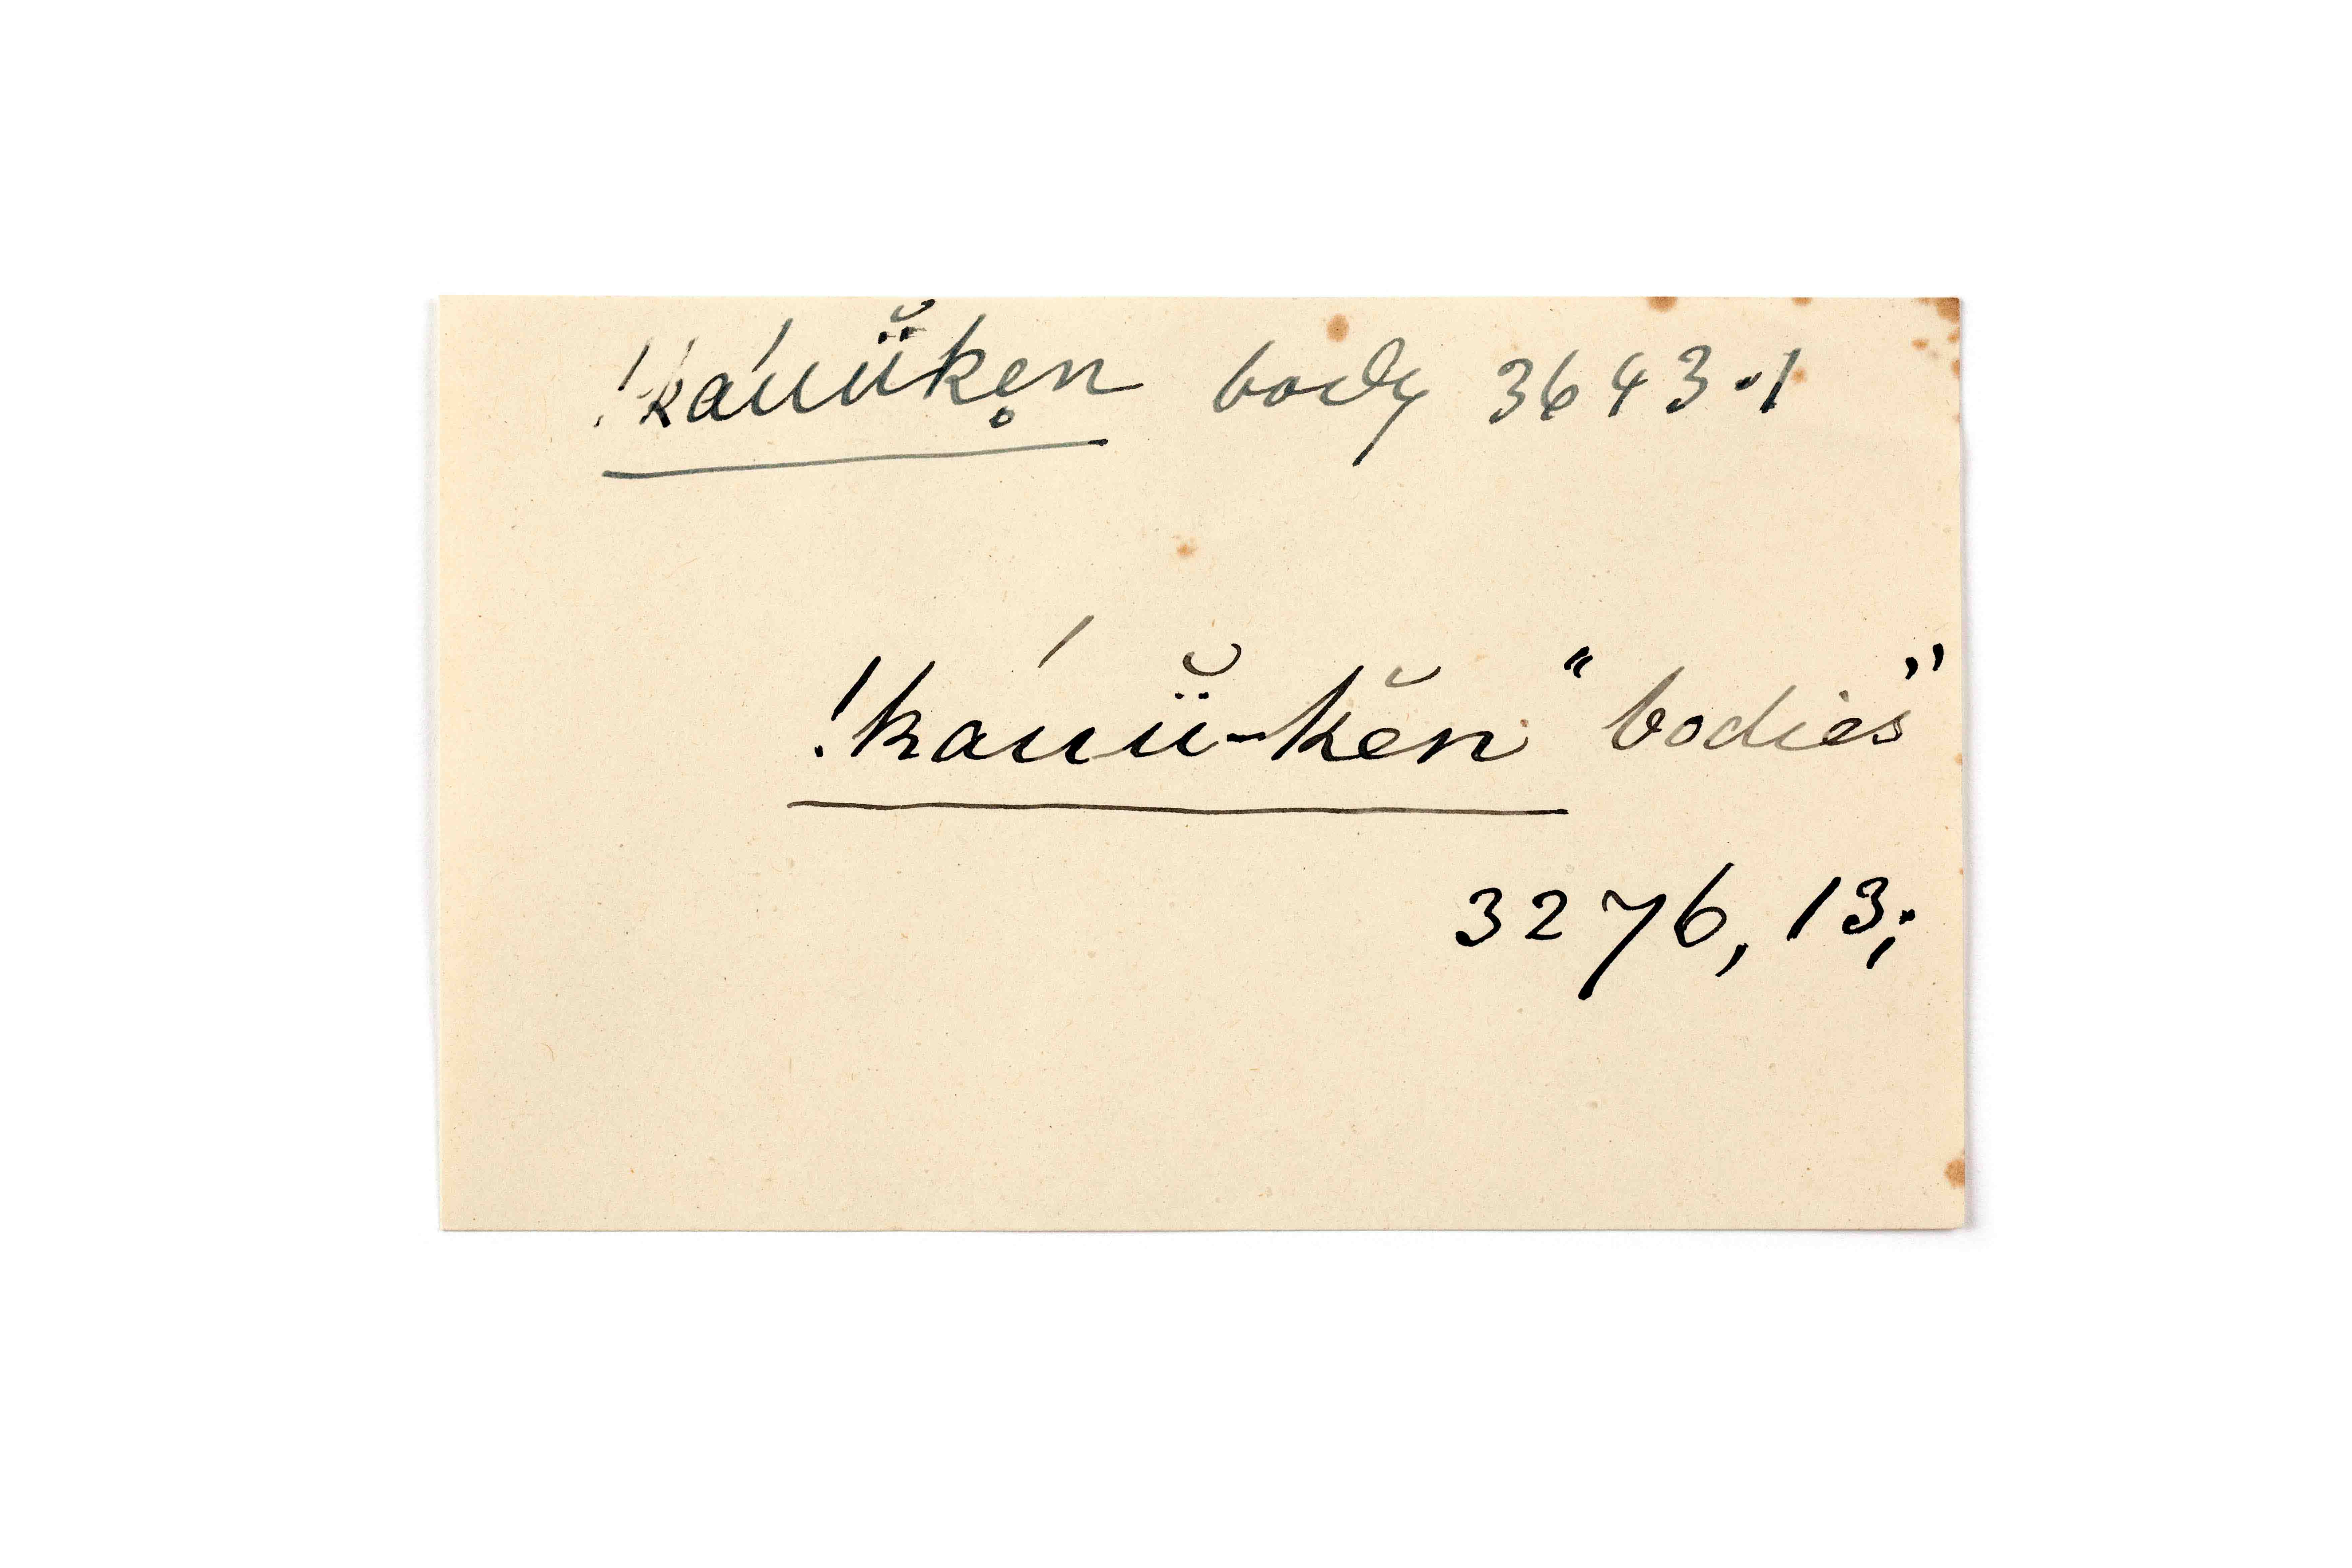 !káuü̆ken̥ body 3643·1
!káuü̆-kĕn “bodies”
3276, 13;